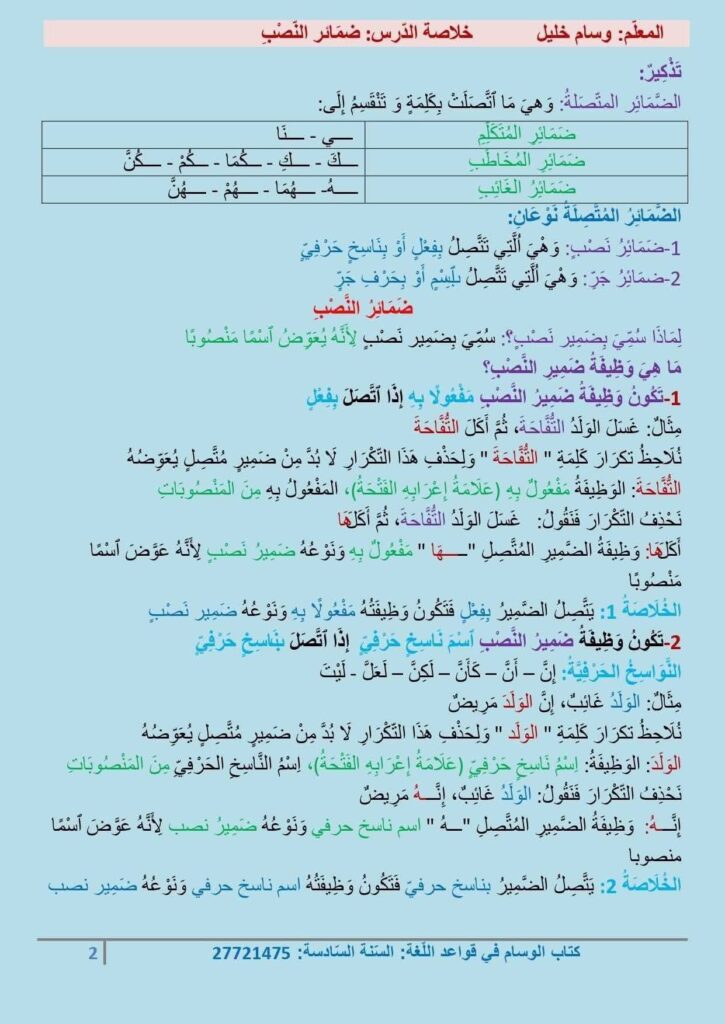 المعلّم: وسام خليل خلاصة الدّرس: ضمَائر النّصْبِ
تَذْكِيرٌ:
الضَّمَائِر المتّصَلةُ: وَهيَ مَا ٱتَّصَلَتْ بِكَلِمَةٍ وَ تَنْقَسِمُ إِلَى:
ضَمَائِرِ المُتَكَلِّمِ ـــي - ـــنَا
ضَمَائِرِ المُخَاطَبِ ـــكَ - ـــكِ - ـــكُمَا - ـــكُمْ - ـــكُنَّ
ضَمَائِرُ الغَائِبِ ـــهُ- ـــهُمَا - ـــهُمْ - ـــهُنَّ
الضَّمَائِرُ المُتَّصِلَةُ نَوْعَانِ:
1-ضَمَائِرُ نَصْبٍ: وَهْيَ ٱلَّتِي تَتَّصِلُ بِفِعْلٍ أَوْ بِنَاسِخٍ حَرْفِيٍّ
2-ضَمَائِرُ جَرٍّ: وَهْيَ ٱلَّتِي تَتَّصِلُ بٱِسْمٍ أَوْ بِحَرْفِ جَرٍّ
ضَمَائِرُ النَّصْبِ
لِمَاذَا سُمِّيَ بِضَمِيرِ نَصْبٍ؟: سُمِّيَ بِضَمِيرِ نَصْبٍ لِأَنَّهُ يُعَوِّضُ ٱسْمًا مَنْصُوبًا
مَا هِيَ وَظِيفَةُ ضَمِيرِ النَّصْبِ؟
1-تَكُونُ وَظِيفَةُ ضَمِيرُ النَّصْبِ مَفْعُولًا بِهِ إِذَا ٱتَّصَلَ بِفِعْلٍ
مِثَالٌ: غَسَلَ الوَلَدُ التُّفَّاحَةَ، ثُمَّ أَكَلَ التُّفَّاحَةَ
نُلَاحِظُ تكرَارَ كَلِمَةِ " التُّفَّاحَةَ " وَلِحَذْفِ هَذَا التِّكْرَارِ لَا بُدَّ مِنْ ضَمِيرٍ مُتَّصِلٍ يُعَوِّضُهُ
التُّفَّاحَةَ: الوَظِيفَةُ مَفْعُولٌ بِهِ (عَلَامَةُ إِعْرَابِهِ الفَتْحَةُ)، المَفْعُولُ بِهِ مِنَ المَنْصُوبَاتِ
نَحْذِفُ التِّكْرَارَ فَنَقُولُ: غَسَلَ الوَلَدُ التُّفَّاحَةَ، ثُمَّ أَكَلَهَا
أَكَلَهَا: وَظِيفَةُ الضَّمِيرِ المُتَّصِلِ "ـــهَا " مَفْعُولٌ بِهِ وَنَوْعُهُ ضَمِيرُ نَصْبٍ لِأَنَّهُ عَوَّضَ ٱسْمًا
مَنْصُوبًا
الخُلَاصَةُ 1: يَتَّصِلُ الضَّمِيرُ بِفِعْلٍ فَتَكُونُ وَظِيفَتُهُ مَفْعُولًا بِهِ وَنَوْعُهُ ضَمِير نَصْبٍ
2-تَكُونُ وَظِيفَةُ ضَمِيرُ النَّصْبِ ٱسْمَ نَاسِخٍ حَرْفِيٍّ إِذَا ٱتَّصَلَ بِنَاسِخٍ حَرْفِيٍّ
النَّوَاسِخُ الحَرْفِيَّةُ: إِنَّ – أَنَّ – كَأَنَّ – لَكِنَّ – لَعَلَّ - لَيْتَ
مِثَالٌ: الوَلَدُ غَائِبٌ، إِنَّ الوَلَدَ مَرِيضٌ
نُلَاحِظُ تكرَارَ كَلِمَةِ " الوَلَد " وَلِحَذْفِ هَذَا التِّكْرَارِ لَا بُدَّ مِنْ ضَمِيرٍ مُتَّصِلٍ يُعَوِّضُهُ
الوَلَدَ: الوَظِيفَةُ: اِسْمُ نَاسِخٍ حَرْفِيٍّ (عَلَامَةُ إِعْرَابِهِ الفَتْحَةُ)، اِسْمُ النَّاسِخِ الحَرْفِيّ مِنَ المَنْصُوبَاتِ
نَحْذِفُ التِّكْرَارَ فَنَقُولُ: الوَلَدُ غَائِبٌ، إِنَّـــهُ مَرِيضٌ
إِنَّـــهُ: وَظِيفَةُ الضَّمِيرِ المُتَّصِلِ "ـــهُ " اسم ناسخ حرفي وَنَوْعُهُ ضَمِيرُ نصب لِأَنَّهُ عَوَّضَ ٱسْمًا
منصوبا
الخُلَاصَةُ 2: يَتَّصِلُ الضَّمِيرُ بناسخ حرفيّ فَتَكُونُ وَظِيفَتُهُ اسم ناسخ حرفي وَنَوْعُهُ ضَمِير نصب
كتاب الوسام في قواعد اللّغة: السّنة السّادسة: 27721475 2